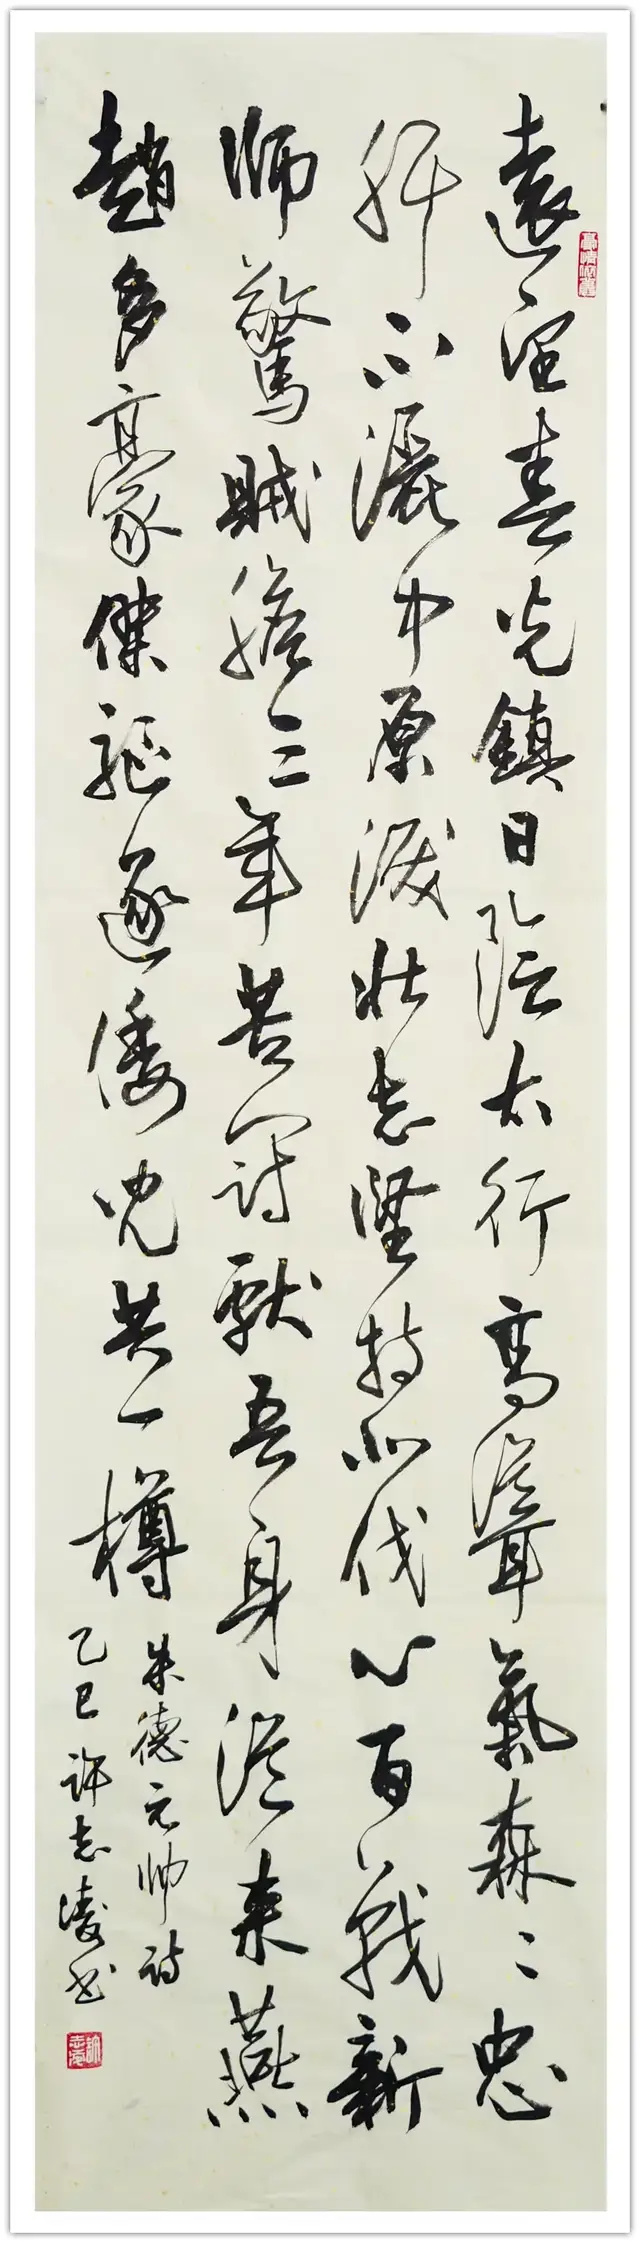 遠望春光鎮日陰太行高聳氣森〻忠
肝不灑中原淚壯志堅持北伐心百戰新
師驚賊膽三年苦鬪獻吾身從來燕
趙多豪傑驅逐倭兒共一樽
朱德元帥詩
乙巳許志凌書